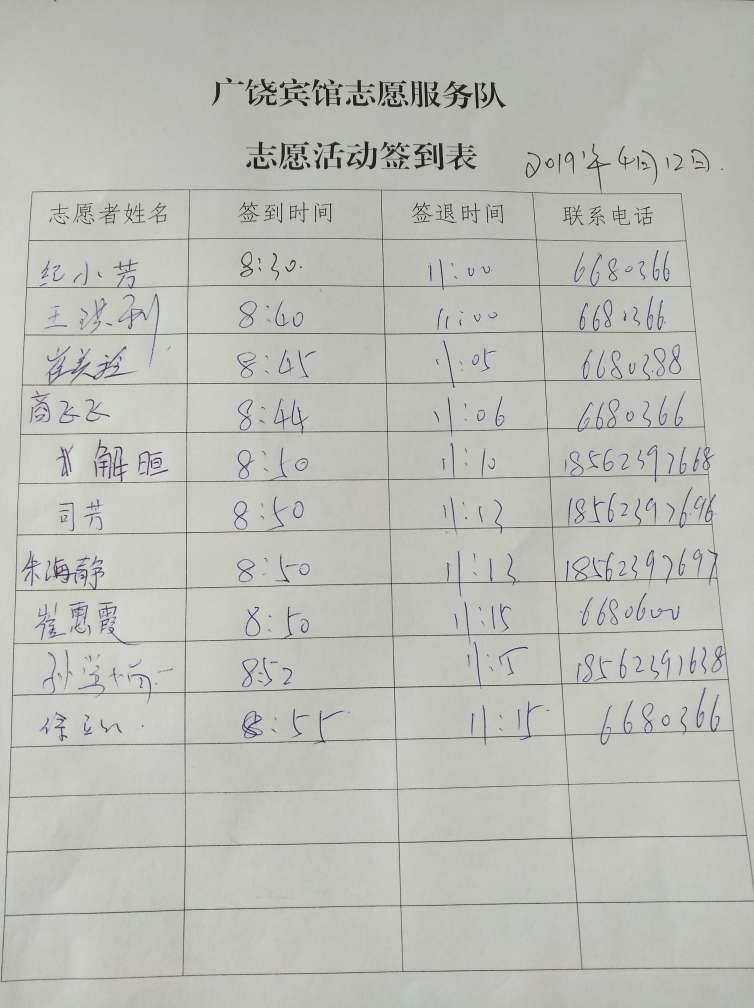 广饶宾馆志愿服务队
志愿活动签到表 2019年4月12日.
志愿者姓名 签到时间 签退时间 联系电话
纪小芳 8:30. 11:00 6680366
王洪利 8:40 11:00 6680366
崔美玲 8:45 11:05 6680388
商飞飞 8:44 11:06 6680366
解晅 8:50 11:10 18562397668
司芳 8:50 11:13 18562397696
朱海静 8:50 11:13 18562397697
崔惠霞 8:50 11:15 6680600
孙 8:52 11:15 18562397638
徐 8:55 11:15 6680366